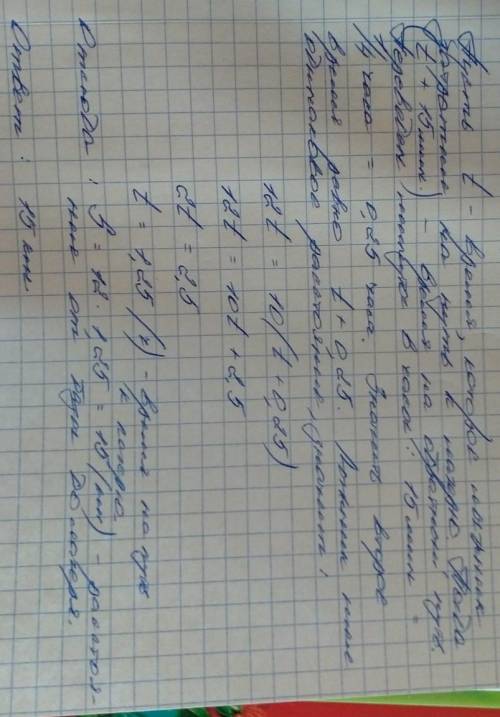 Пусть t - время, которое мальчик
затратил на путь к лагерю. Тогда
(t + 15 мин) - время на обратный путь.
Переведём минуты в часы: 15 мин =
1/4 часа = 0,25 часа. Значит второе
время равно t + 0,25. Мальчики
одинаковое расстояние, значит,
12t = 10(t + 0,25)
12t = 10t + 2,5
2t = 2,5
t = 1,25 (ч) - время на путь
к лагерю
Отсюда: S = 12 · 1,25 = 15 (км) - расстоя-
ние от до лагеря.
Ответ: 15 км